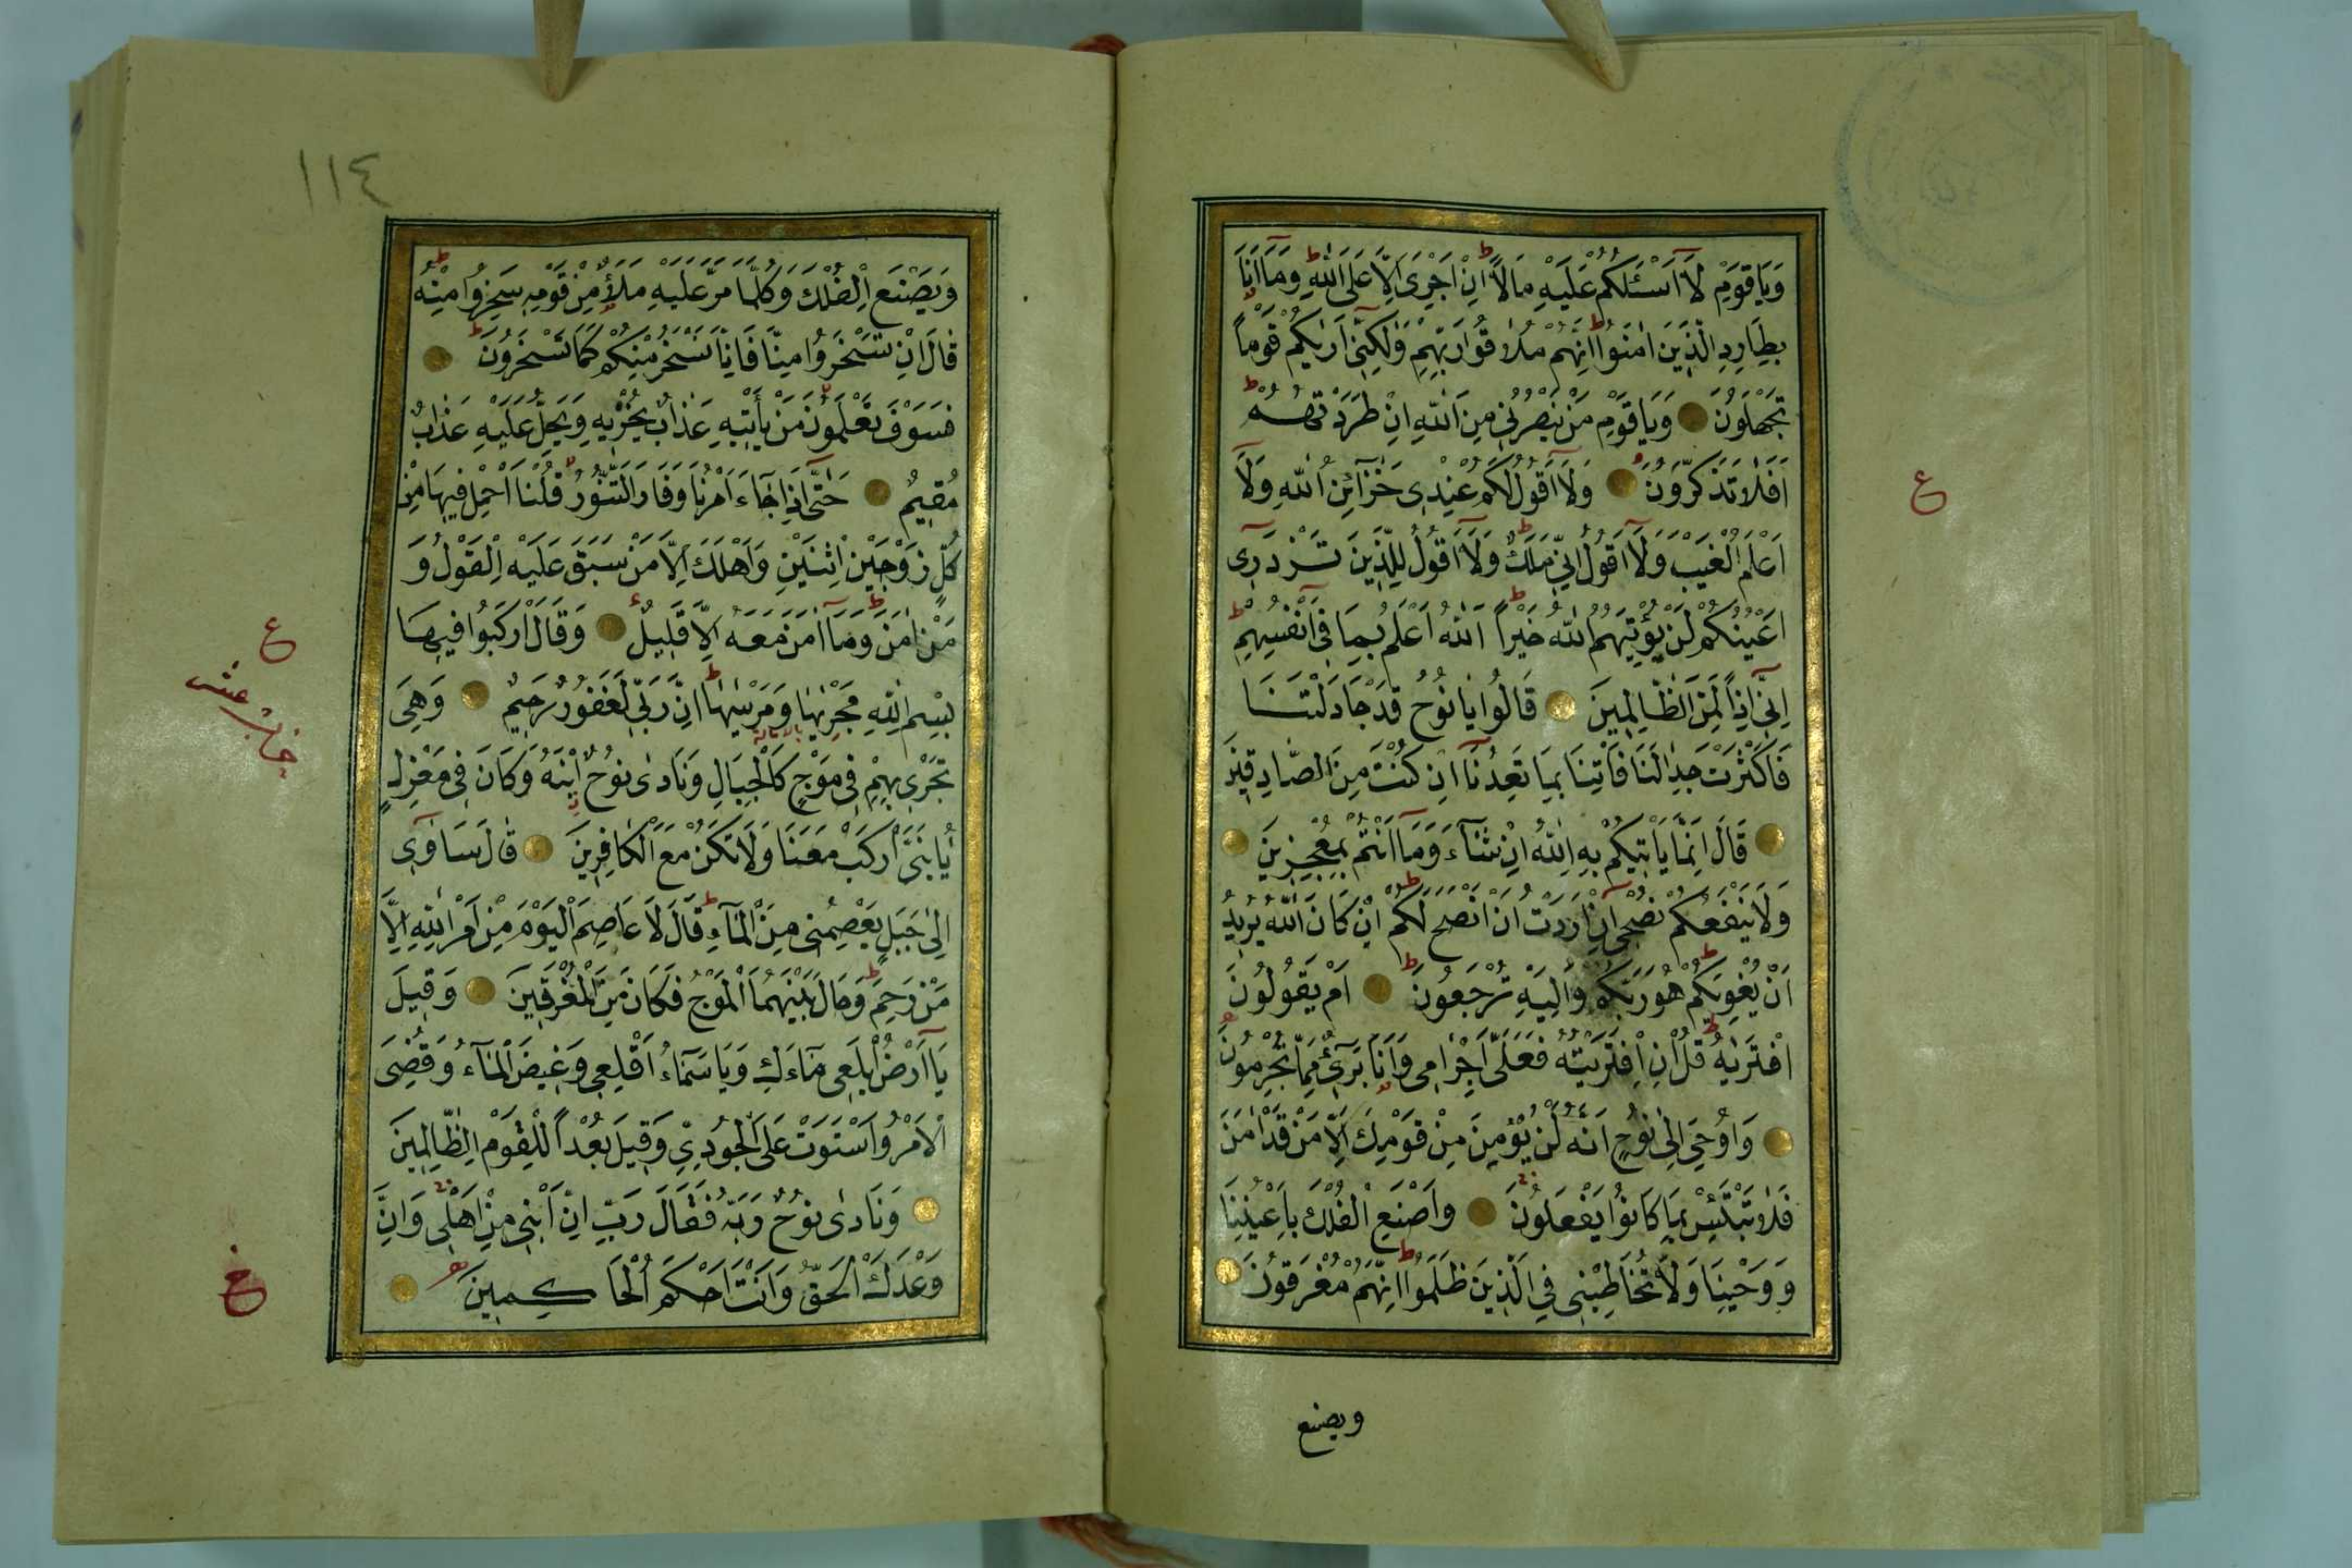 وَيَا قَوْمِ لَآ اَسْئَلُكُمْ عَلَيْهِ مَالًا اِنْ اَجْرِىَ اِلَّا عَلَى اللّٰهِ وَمَآ اَنَا
بِطَارِدِ الَّذِينَ اٰمَنُوا اِنَّهُمْ مُلَاقُوا رَبِّهِمْ وَلٰكِنِّىٓ اَرٰيكُمْ قَوْمًا
تَجْهَلُونَ وَيَا قَوْمِ مَنْ يَنْصُرُنِى مِنَ اللّٰهِ اِنْ طَرَدْتُهُمْ
اَفَلَا تَذَكَّرُونَ وَلَآ اَقُولُ لَكُمْ عِنْدِى خَزَآئِنُ اللّٰهِ وَلَآ
اَعْلَمُ الْغَيْبَ وَلَآ اَقُولُ اِنِّى مَلَكٌ وَلَآ اَقُولُ لِلَّذِينَ تَزْدَرِىٓ
اَعْيُنُكُمْ لَنْ يُؤْتِيَهُمُ اللّٰهُ خَيْرًا اَللّٰهُ اَعْلَمُ بِمَا فِىٓ اَنْفُسِهِمْ
اِنِّىٓ اِذًا لَمِنَ الظَّالِمِينَ قَالُوا يَا نُوحُ قَدْ جَادَلْتَنَا
فَاَكْثَرْتَ جِدَالَنَا فَاْتِنَا بِمَا تَعِدُنَآ اِنْ كُنْتَ مِنَ الصَّادِقِينَ
قَالَ اِنَّمَا يَاْتِيكُمْ بِهِ اللّٰهُ اِنْ شَآءَ وَمَآ اَنْتُمْ بِمُعْجِزِينَ
وَلَا يَنْفَعُكُمْ نُصْحِىٓ اِنْ اَرَدْتُ اَنْ اَنْصَحَ لَكُمْ اِنْ كَانَ اللّٰهُ يُرِيدُ
اَنْ يُغْوِيَكُمْ هُوَ رَبُّكُمْ وَاِلَيْهِ تُرْجَعُونَ اَمْ يَقُولُونَ
افْتَرٰيهُ قُلْ اِنِ افْتَرَيْتُهُ فَعَلَىَّ اِجْرَامِى وَاَنَا بَرِىٓءٌ مِمَّا تُجْرِمُونَ
وَاُوحِىَ اِلٰى نُوحٍ اَنَّهُ لَنْ يُؤْمِنَ مِنْ قَوْمِكَ اِلَّا مَنْ قَدْ اٰمَنَ
فَلَا تَبْتَئِسْ بِمَا كَانُوا يَفْعَلُونَ وَاصْنَعِ الْفُلْكَ بِاَعْيُنِنَا
وَوَحْيِنَا وَلَا تُخَاطِبْنِى فِى الَّذِينَ ظَلَمُوا اِنَّهُمْ مُغْرَقُونَ
ويصنع
ع
١١٤
وَيَصْنَعُ الْفُلْكَ وَكُلَّمَا مَرَّ عَلَيْهِ مَلَأٌ مِنْ قَوْمِهِ سَخِرُوا مِنْهُ
قَالَ اِنْ تَسْخَرُوا مِنَّا فَاِنَّا نَسْخَرُ مِنْكُمْ كَمَا تَسْخَرُونَ
فَسَوْفَ تَعْلَمُونَ مَنْ يَأْتِيهِ عَذَابٌ يُخْزِيهِ وَيَحِلُّ عَلَيْهِ عَذَابٌ
مُقِيمٌ حَتّٰىٓ اِذَا جَآءَ اَمْرُنَا وَفَارَ التَّنُّورُ قُلْنَا احْمِلْ فِيهَا مِنْ
كُلٍّ زَوْجَيْنِ اثْنَيْنِ وَاَهْلَكَ اِلَّا مَنْ سَبَقَ عَلَيْهِ الْقَوْلُ وَ
مَنْ اٰمَنَ وَمَآ اٰمَنَ مَعَهُ اِلَّا قَلِيلٌ وَقَالَ ارْكَبُوا فِيهَا
بِسْمِ اللّٰهِ مَجْرٰيهَا وَمُرْسٰيهَا اِنَّ رَبِّى لَغَفُورٌ رَحِيمٌ وَهِىَ
تَجْرِى بِهِمْ فِى مَوْجٍ كَالْجِبَالِ وَنَادٰى نُوحٌ ابْنَهُ وَكَانَ فِى مَعْزِلٍ
يَا بُنَىَّ ارْكَبْ مَعَنَا وَلَا تَكُنْ مَعَ الْكَافِرِينَ قَالَ سَاٰوِىٓ
اِلٰى جَبَلٍ يَعْصِمُنِى مِنَ الْمَآءِ قَالَ لَا عَاصِمَ الْيَوْمَ مِنْ اَمْرِ اللّٰهِ اِلَّا
مَنْ رَحِمَ وَحَالَ بَيْنَهُمَا الْمَوْجُ فَكَانَ مِنَ الْمُغْرَقِينَ وَقِيلَ
يَآ اَرْضُ ابْلَعِى مَآءَكِ وَيَا سَمَآءُ اَقْلِعِى وَغِيضَ الْمَآءُ وَقُضِىَ
الْاَمْرُ وَاسْتَوَتْ عَلَى الْجُودِىِّ وَقِيلَ بُعْدًا لِلْقَوْمِ الظَّالِمِينَ
وَنَادٰى نُوحٌ رَبَّهُ فَقَالَ رَبِّ اِنَّ ابْنِى مِنْ اَهْلِى وَاِنَّ
وَعْدَكَ الْحَقُّ وَاَنْتَ اَحْكَمُ الْحَاكِمِينَ
ع